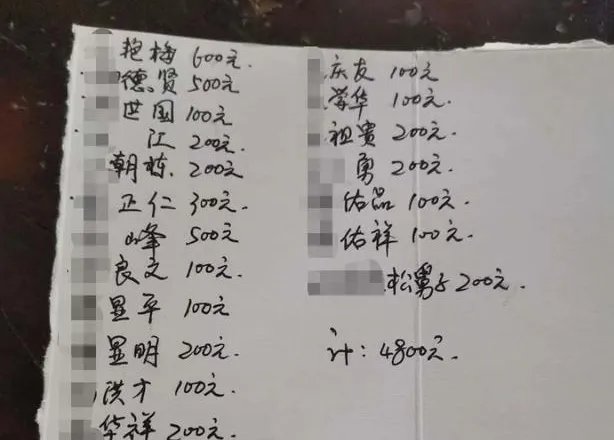 艳梅 600元.
德贤 500元
世国 100元
江 200元.
朝栋. 200元
正仁 300元.
峰 500元
良文 100元.
显平 100元
显明 200元.
洪才 100元.
华祥 200元.
庆友 100元
荣华 100元.
祖贵 200元.
勇 200元.
佑品 100元.
佑祥 100元.
松舅子 200元.
计: 4800元.